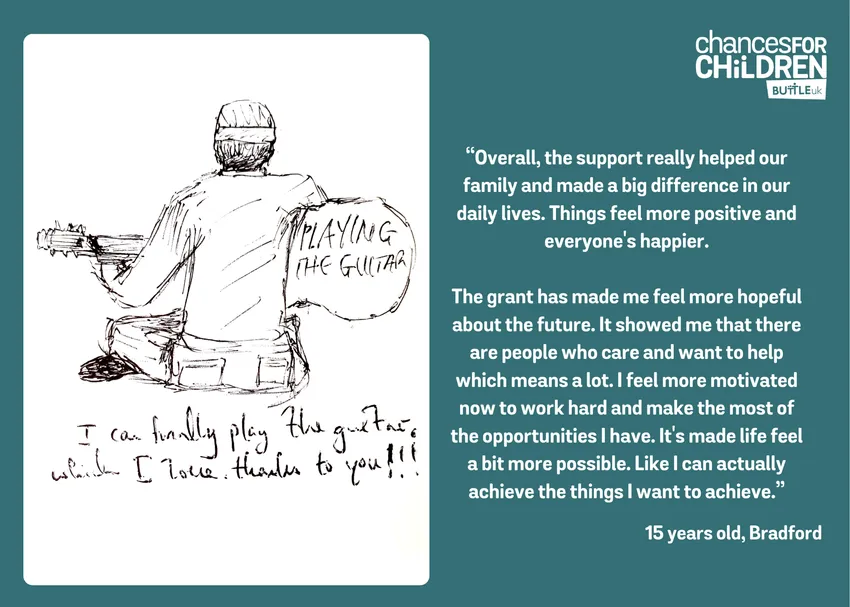 PLAYING
THE GUITAR
I can finally play the guitar,
which I love. thanks to you!!!
chancesFOR
CHiLDREN
BUTTLEuk
“Overall, the support really helped our
family and made a big difference in our
daily lives. Things feel more positive and
everyone's happier.
The grant has made me feel more hopeful
about the future. It showed me that there
are people who care and want to help
which means a lot. I feel more motivated
now to work hard and make the most of
the opportunities I have. It's made life feel
a bit more possible. Like I can actually
achieve the things I want to achieve.”
15 years old, Bradford